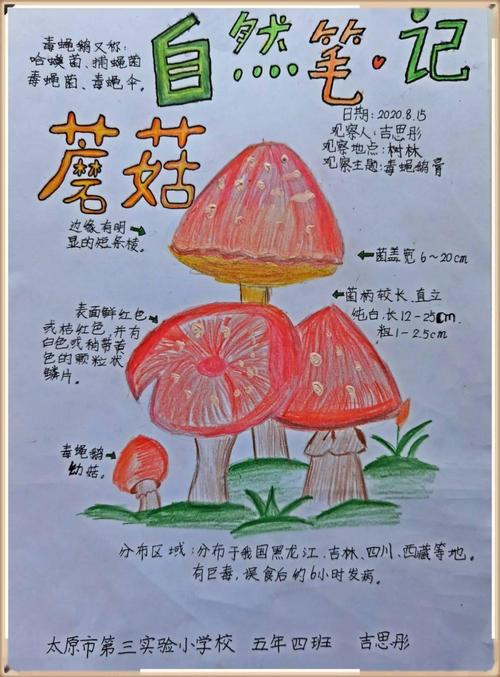 自然笔记
毒蝇鹅又称:
哈蟆菌、捕蝇菌
毒蝇菌、毒蝇伞。
日期:2020.8.15
观察人:吉思彤
观察地点:树林
观察主题:毒蝇鹅膏
蘑菇
边缘有明
显的短条棱。
菌盖宽6~20cm
菌柄较长、直立
纯白,长12-25cm.
粗1-2.5cm.
表面鲜红色
或桔红色,并有
白色或稍带黄
色的颗粒状
鳞片。
毒蝇鹅
幼菇。
分布区域:分布于我国黑龙江、吉林、四川、西藏等地。
有巨毒,误食后约6小时发病。
太原市第三实验小学校 五年四班 吉思彤